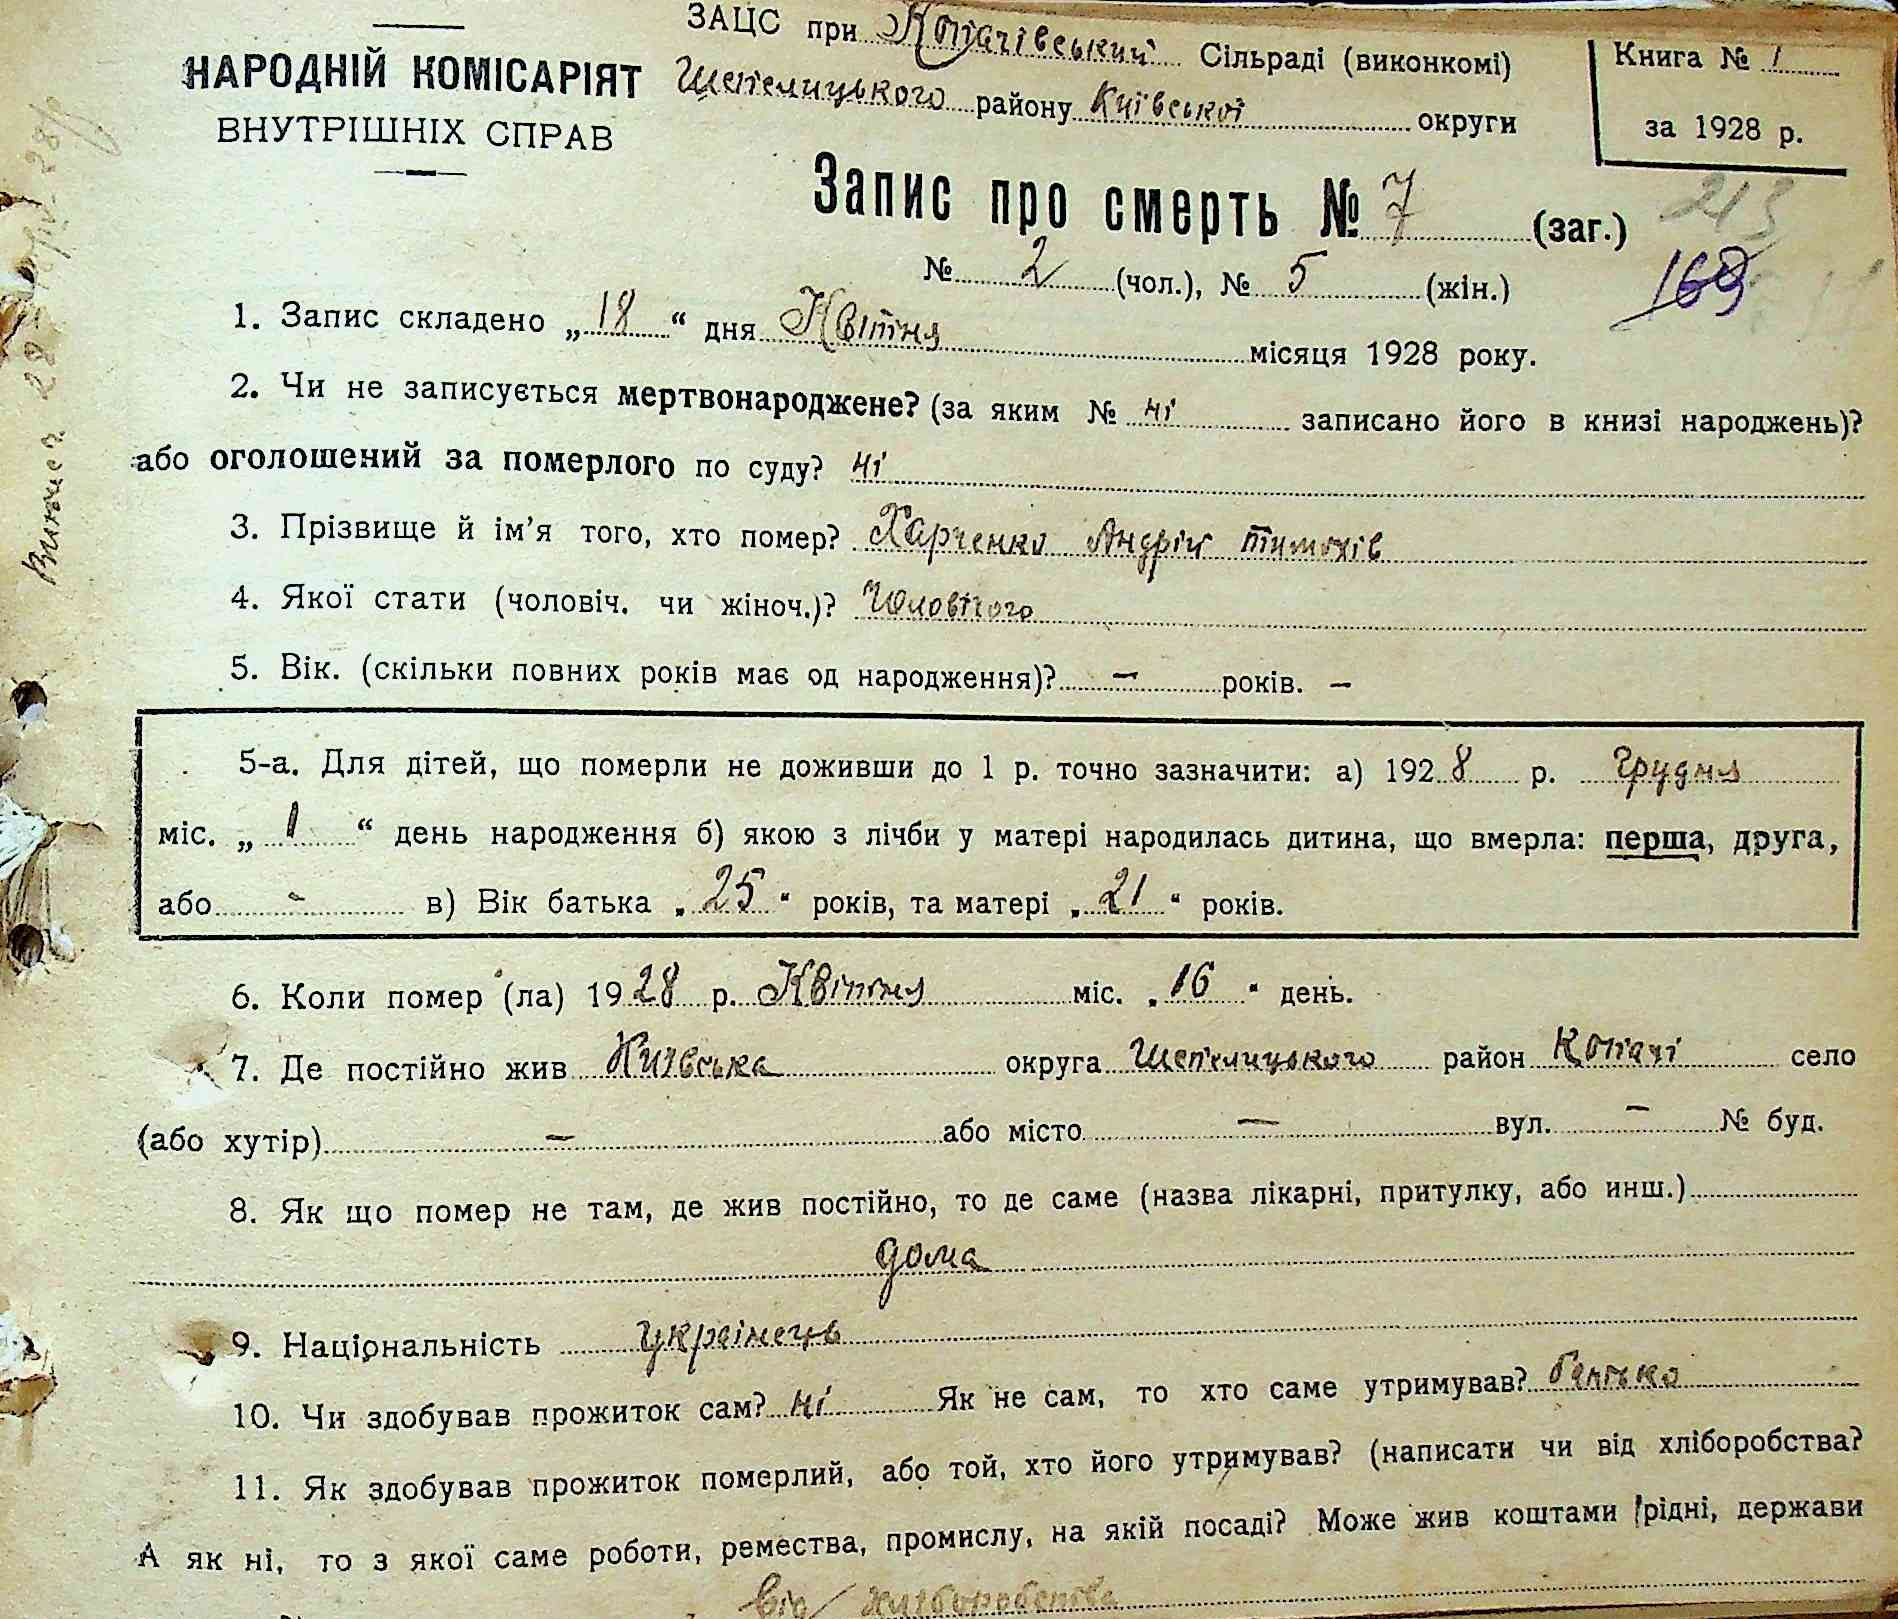 ЗАЦС при Копачівський Сільраді (виконкомі)
НАРОДНІЙ КОМІСАРІЯТ
ВНУТРІШНІХ СПРАВ
Шепелицького району Київської округи
Книга № 1
за 1928 р.
Запис про смерть № 7 (заг.)
213
№ 2 (чол.), № 5 (жін.)
169
1. Запис складено „18“ дня Квітня місяця 1928 року.
2. Чи не записується мертвонароджене? (за яким № ні записано його в книзі народжень)?
або оголошений за померлого по суду? ні
3. Прізвище й ім’я того, хто помер? Харченко Андрій Тимохів
4. Якої стати (чоловіч. чи жіноч.)? Чоловічого
5. Вік. (скільки повних років має од народження)? — років. —
5-а. Для дітей, що померли не доживши до 1 р. точно зазначити: а) 1928 р. Грудня
міс. „1“ день народження б) якою з лічби у матері народилась дитина, що вмерла: перша, друга,
або - в) Вік батька „25“ років, та матері „21“ років.
6. Коли помер (ла) 1928 р. Квітня міс. „16“ день.
7. Де постійно жив Київська округа Шепелицького район Копачі село
(або хутір) — або місто — вул. — № буд.
8. Як що помер не там, де жив постійно, то де саме (назва лікарні, притулку, або инш.)
дома
9. Національність українець
10. Чи здобував прожиток сам? ні Як не сам, то хто саме утримував? батько
11. Як здобував прожиток померлий, або той, хто його утримував? (написати чи від хліборобства?
А як ні, то з якої саме роботи, ремества, промислу, на якій посаді? Може жив коштами рідні, держави
Від хліборобства